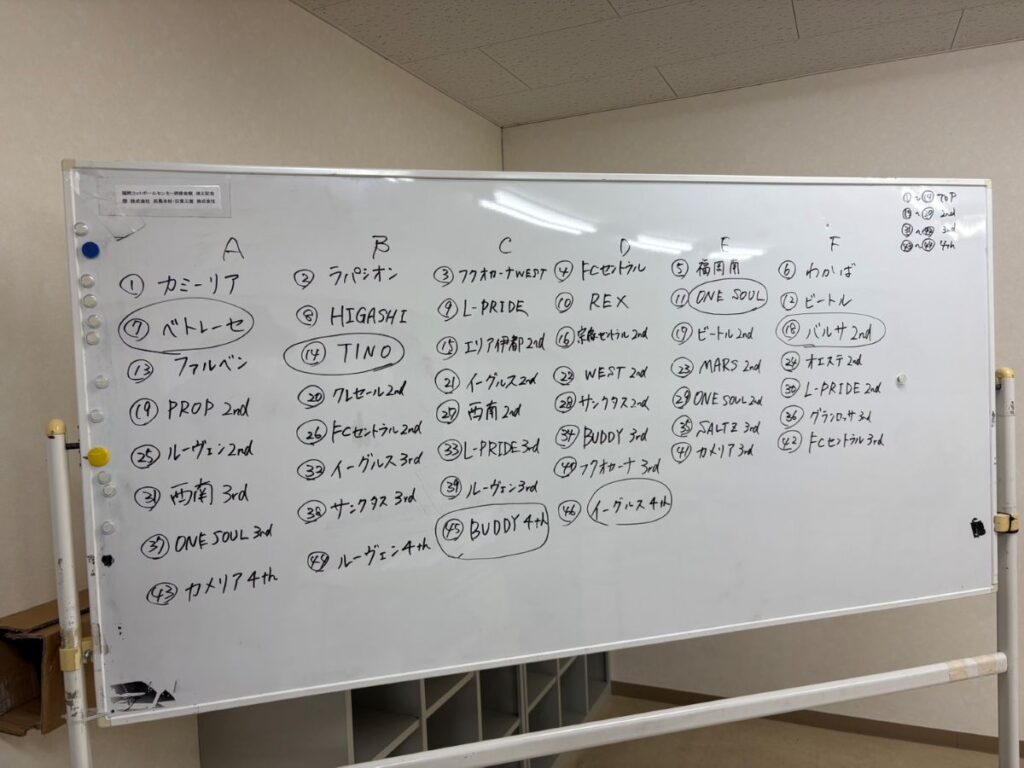 福岡フットボールセンター研修会館 竣工記念
A B C D E F
① カミーリア
⑦ ベトレーセ
⑬ ファルベン
⑲ PROP 2nd
㉕ ルーヴェン 2nd
㉛ 西南 3rd
㊲ ONE SOUL 3rd
㊸ カメリア 4th
② ラパシオン
⑧ HIGASHI
⑭ TINO
⑳ クレセール 2nd
㉖ FCセントラル 2nd
㉜ イーグルス 3rd
㊳ サンクタス 3rd
㊹ ルーヴェン 4th
③ フクオカーナWEST
⑨ L-PRIDE
⑮ エリア伊都 2nd
㉑ イーグルス 2nd
㉗ 西南 2nd
㉝ L-PRIDE 3rd
㊴ ルーヴェン 3rd
㊺ BUDDY 4th
④ FCセントラル
⑩ REX
⑯ 宗像セントラル 2nd
㉒ WEST 2nd
㉘ サンクタス 2nd
㉞ BUDDY 3rd
㊵ フクオカーナ 3rd
㊻ イーグルス 4th
⑤ 福岡南
⑪ ONE SOUL
⑰ ビートル 2nd
㉓ MARS 2nd
㉙ ONE SOUL 2nd
㉟ SALTZ 3rd
㊶ カメリア 3rd
⑥ わかば
⑫ ビートル
⑱ バルサ 2nd
㉔ オエステ 2nd
㉚ L-PRIDE 2nd
㊱ グランロッサ 3rd
㊷ FCセントラル 3rd
①~⑭ TOP
2nd
3rd
4th